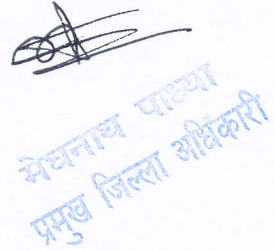 मेघनाथ पाध्या
प्रमुख जिल्ला अधिकारी